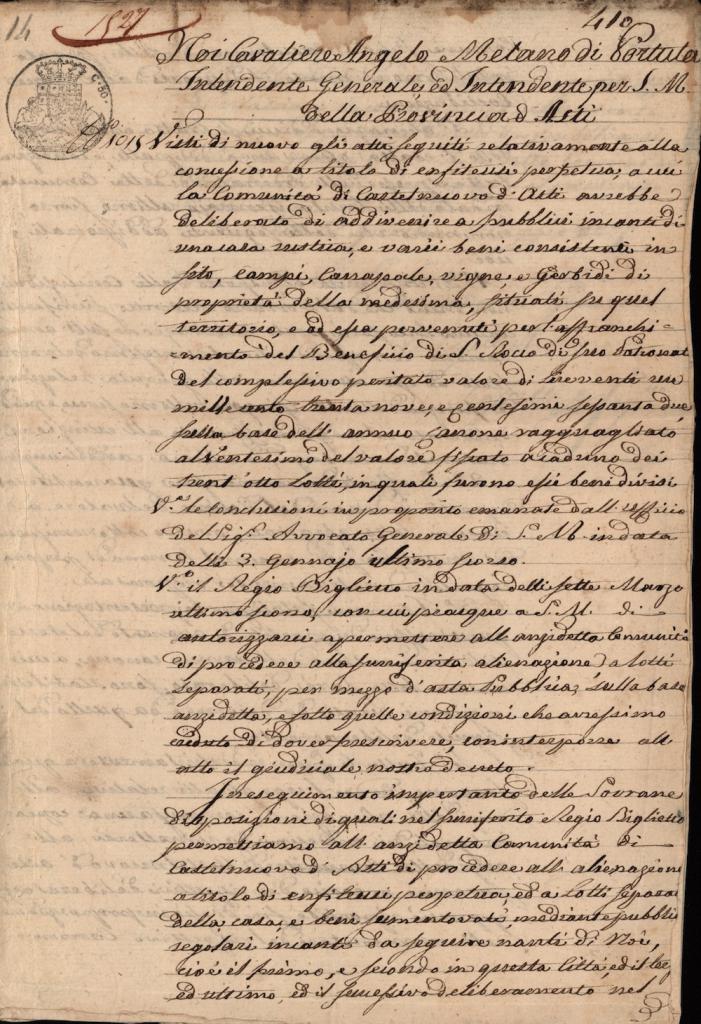 14 1827 410
C. 50.
Noi Cavaliere Angelo Metano di Portula
Intendente Generale, ed Intendente per S. M.
della Provincia d'Asti
Visti di nuovo gli atti seguiti relativamente alla
concessione a titolo di enfiteusi perpetua, a cui
la Comunità di Castelnuovo d'Asti avrebbe
deliberato di addivenire a pubblici incanti di
una casa rustica, e varii beni consistenti in
sito, campi, Canapale, vigne, e Gerbidi di
proprietà della medesima, situati su quel
territorio, e ad essa pervenuti per l'affranchi-
mento del Beneficio di S. Rocco di suo Patronat
del complessivo peritato valore di lire venti un
mille cento trenta nove, e centesimi sessanta due
sulla base dell'annuo Canone ragguagliato
al Ventesimo del valore fissato a caduno dei
trent'otto Lotti, in quali furono essi beni divisi
V.e le conclusioni in proposito emanate dall'ufficio
del Sig.r Avvocato Generale di S. M. in data
delli 3. Gennajo ultimo scorso.
V.o il Regio Biglietto in data delli sette Marzo
ultimo scorso, con cui piacque a S. M. di
autorizzarci a permettere all'anzidetta Comunità
di procedere alla surriferita alienazione a lotti
separati, per mezzo d'asta Pubblica, sulla base
anzidetta, e sotto quelle condizioni che avressimo
creduto di dover prescrivere, con interporre all'
atto il giudiciale nostro decreto.
In eseguimento impertanto delle Sovrane
disposizioni di quali nel surriferito Regio Biglietto
permettiamo all'anzidetta Comunità di
Castelnuovo d'Asti di procedere all'alienazione
a titolo di enfiteusi perpetua, ed a lotti separa
della casa, e beni sumentovati, mediante pubbli
regolari incanti da seguire nanti di Noi,
cioè il primo, e secondo in questa Città, ed il ter
ed ultimo, ed il successivo deliberamento nel